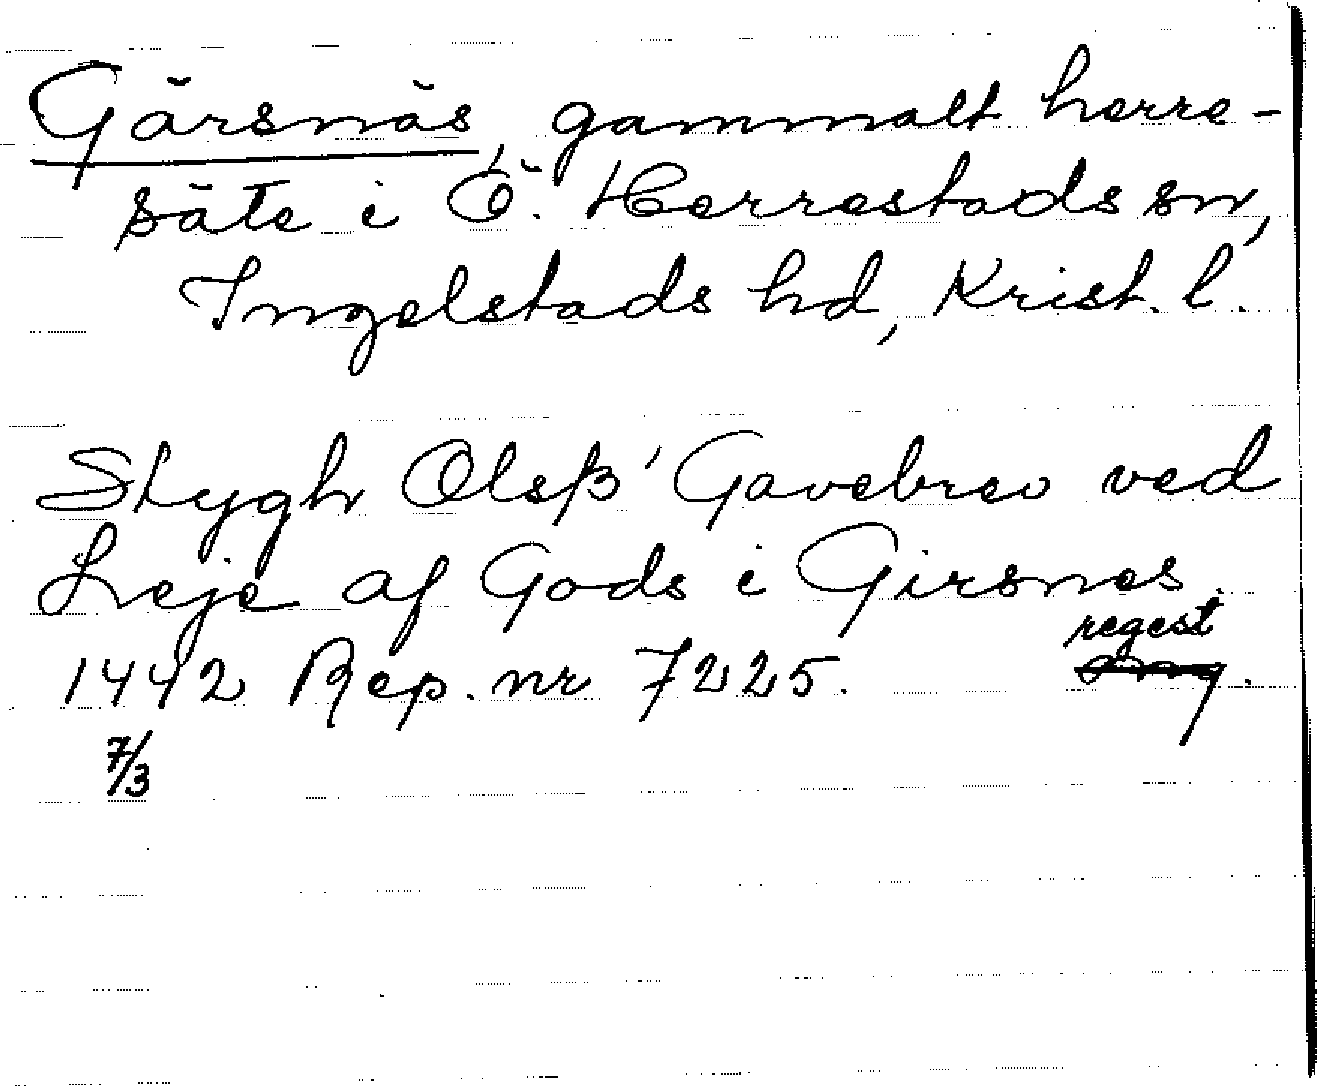 Gärsnäs, gammalt herre-
säte i Ö. Herrestads sn,
Ingelstads hd, Krist. l.
Stygh Olsß' Gavebrev ved
Leje af Gods i Girsnes.
regest
1442 Rep. nr 7225.
7/3